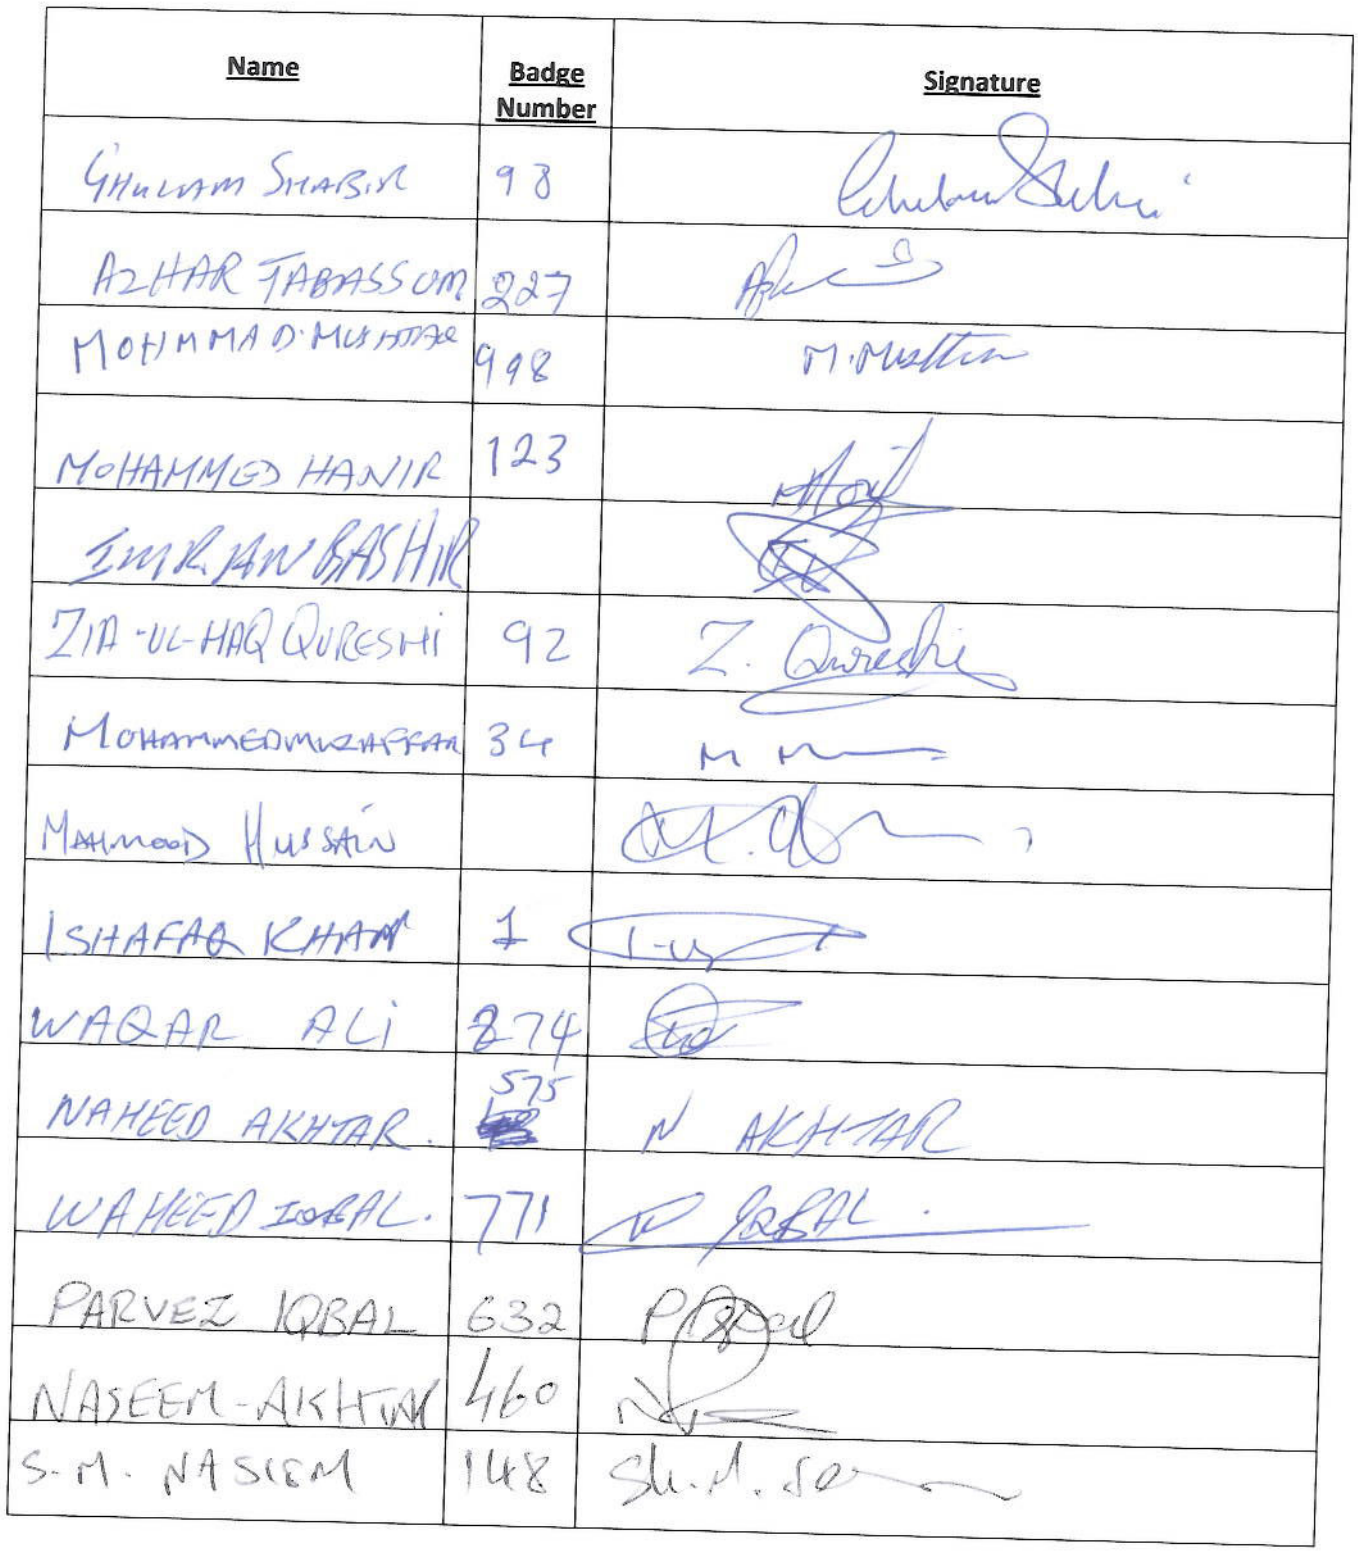 Name Badge Number Signature
GHULAM SHABIR 93
AZHAR TABASSUM 227
MOHMMAD. MUSHTAQ 998 M. Mushta
MOHAMMED HANIF 123
IMRAN BASHIR
ZIA-UL-HAQ QURESHI 92 Z. Qureshi
MOHAMMED MUZAFFAR 34 M M
MAHMOOD HUSSAIN
ISHAFAQ KHAN 1
WAQAR ALi 274
NAHEED AKHTAR. 575 N AKHTAR
WAHEED IQBAL. 771 W IQBAL.
PARVEZ IQBAL 632 P Iqbal
NASEEM-AKHTAR 460
S.M. NASIEM 148